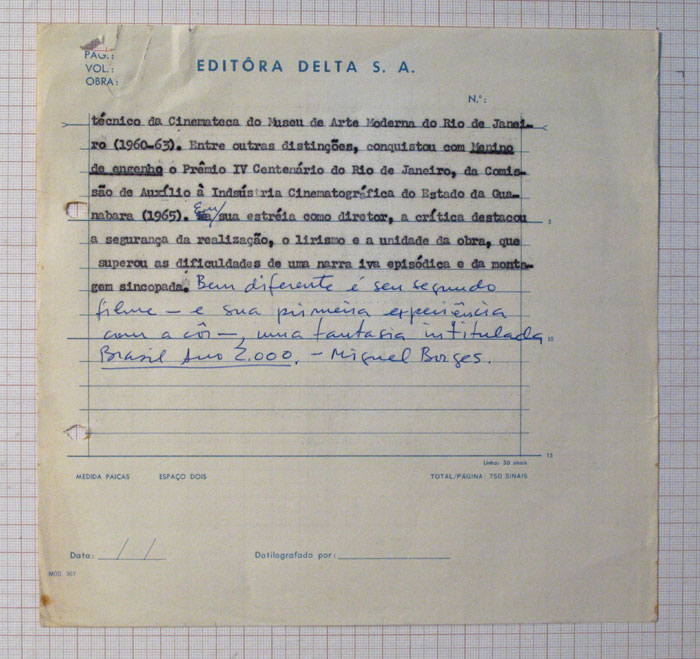 PÁG.:
VOL.:
OBRA:
EDITÔRA DELTA S. A.
N.º:
técnico da Cinemateca do Museu de Arte Moderna do Rio de Janei-
ro (1960-63). Entre outras distinções, conquistou com Menino
de engenho o Prêmio IV Centenário do Rio de Janeiro, da Comis-
são de Auxílio à Indsústria Cinematográfica do Estado da Gua-
nabara (1965). Em/ sua estréia como diretor, a crítica destacou
5
a segurança da realização, o lirismo e a unidade da obra, que
superou as dificuldades de uma narra iva episódica e da monta-
gem sincopada. Bem diferente é seu segundo
filme — e sua primeira experiência
com a côr —, uma fantasia intitulada
10
Brasil Ano 2.000. — Miguel Borges.
15
Linha: 50 sinais
MEDIDA PAICAS ESPAÇO DOIS TOTAL/PÁGINA: 750 SINAIS
Data: / / Datilografado por:
MOD. 507